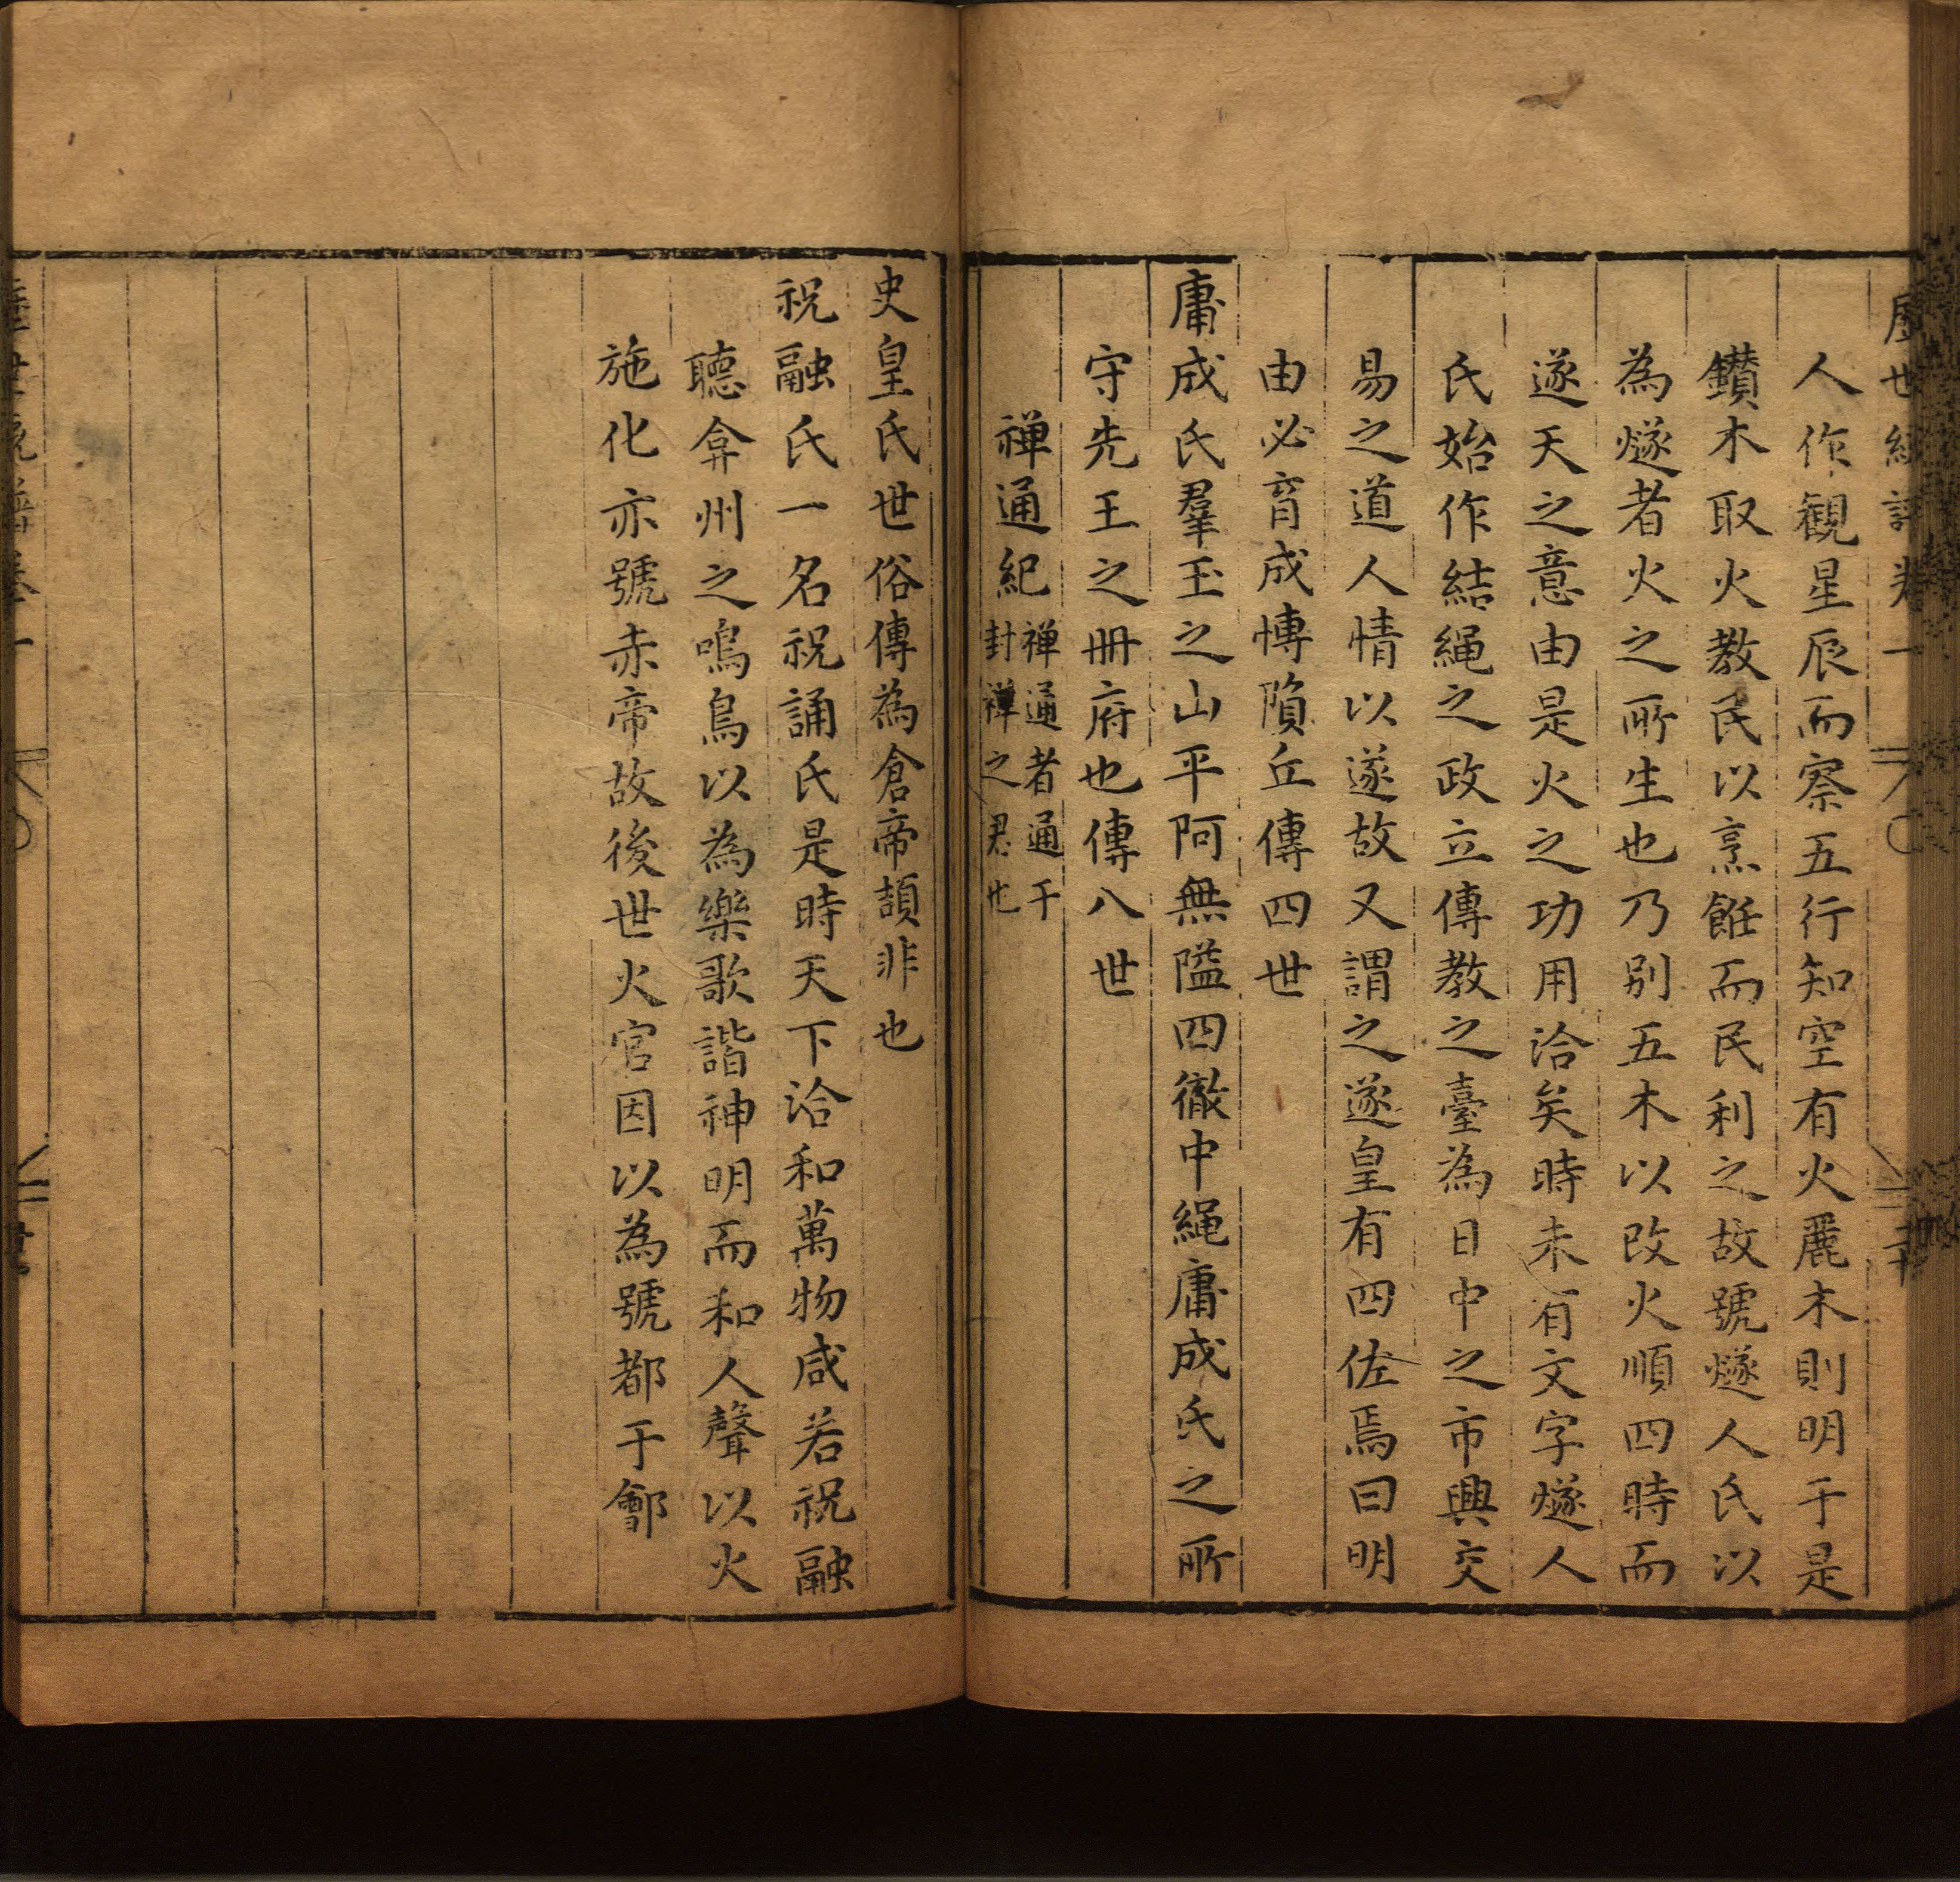 歷世統譜卷一
人作觀星辰而察五行知空有火麗木則明于是
鑽木取火教民以烹餁而民利之故號燧人氏以
為燧者火之所生也乃別五木以改火順四時而
遂天之意由是火之功用洽矣時未有文字燧人
氏始作結繩之政立傳教之臺為日中之市興交
易之道人情以遂故又謂之遂皇有四佐焉曰明
由必育成博隕丘傳四世
庸成氏羣玉之山平阿無隘四徹中繩庸成氏之所
守先王之冊府也傳八世
禪通紀
禪通者通于
封禪之君也
史皇氏世俗傳為倉帝頡非也
祝融氏一名祝誦氏是時天下洽和萬物咸若祝融
聽弇州之鳴鳥以為樂歌諧神明而和人聲以火
施化亦號赤帝故後世火官因以為號都于鄶